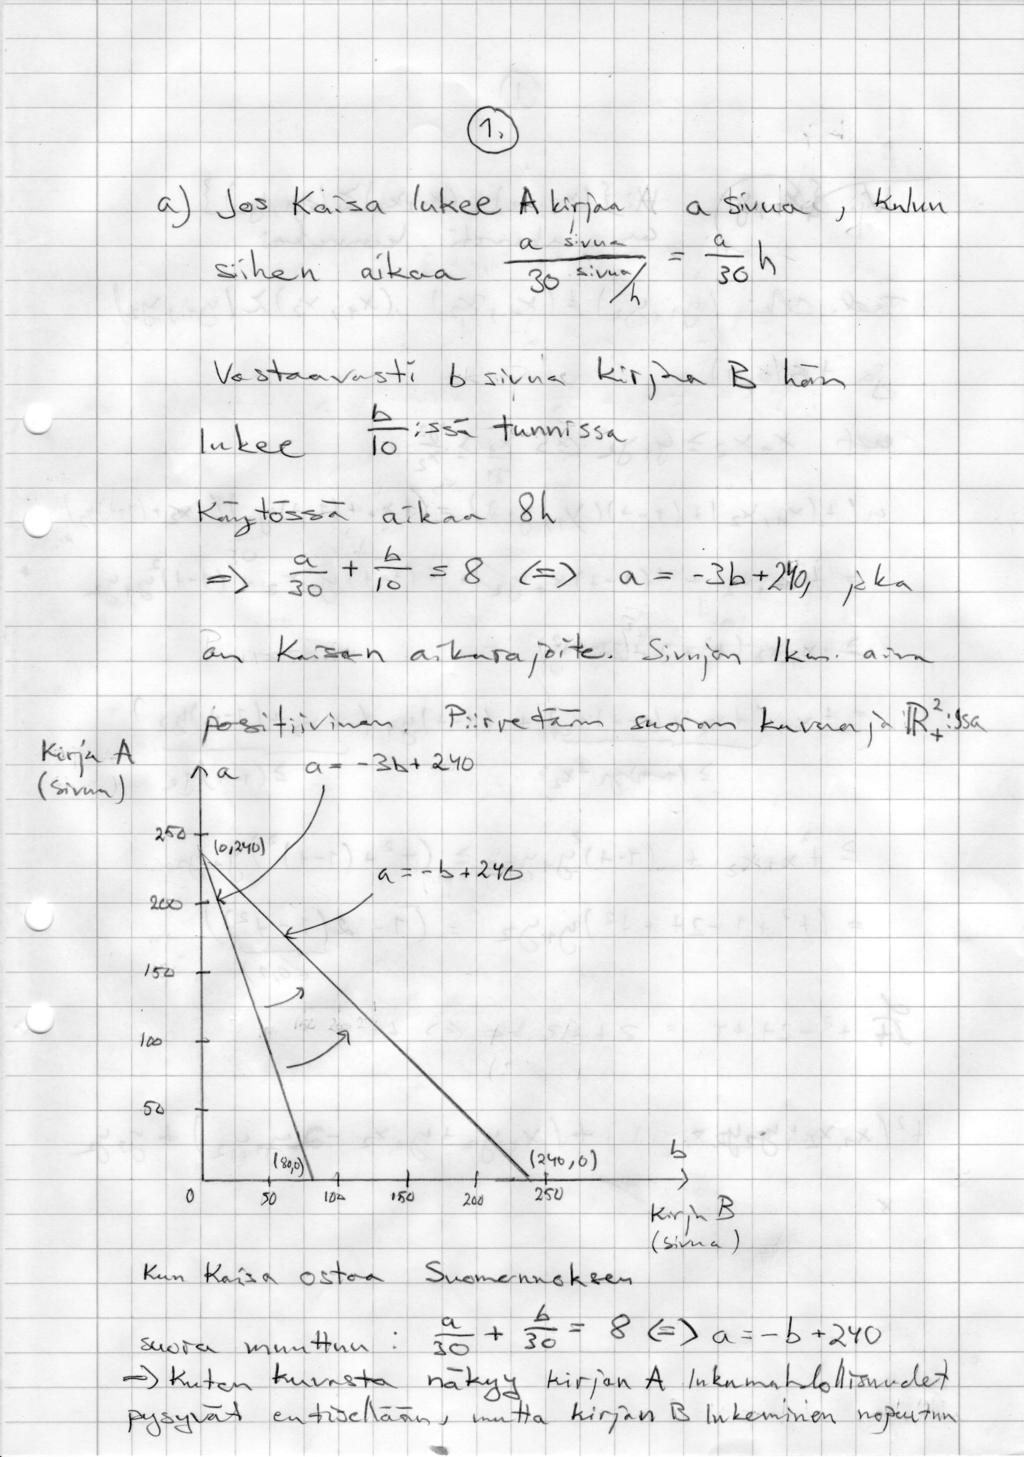 1.
a) Jos Kaisa lukee A kirjaa a sivua, kuluu
siihen aikaa a sivua / 30 sivua/h = a/30 h
Vastaavasti b sivua kirjaa B hän
lukee b/10 :ssä tunnissa
Käytössä aikaa 8h
=> a/30 + b/10 = 8 <=> a = -3b+240, joka
on Kaisan aikarajoite. Sivujen lkm. aina
positiivinen. Piirretään suoran kuvaaja ℝ²₊:ssa
Kirja A
(sivua)
a
a = -3b+240
250
(0,240)
a = -b+240
200
150
100
50
(80,0)
(240,0)
b
0 50 100 150 200 250
Kirja B
(sivua)
Kun Kaisa ostaa Suomennoksen
suora muuttuu: a/30 + b/30 = 8 <=> a = -b+240
=> Kuten kuvasta näkyy kirjan A lukumahdollisuudet
pysyvät entisellään, mutta kirjan B lukeminen nopeutuu